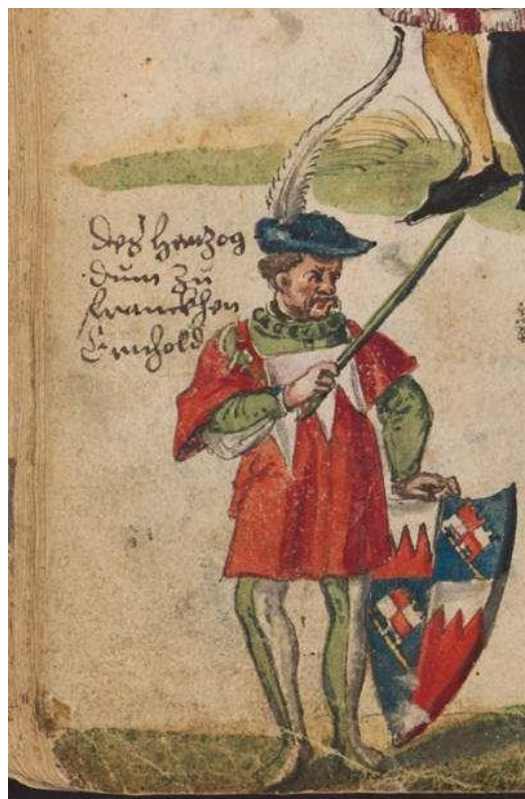 des Hertzog
dum zu
franckhen
Ernhold